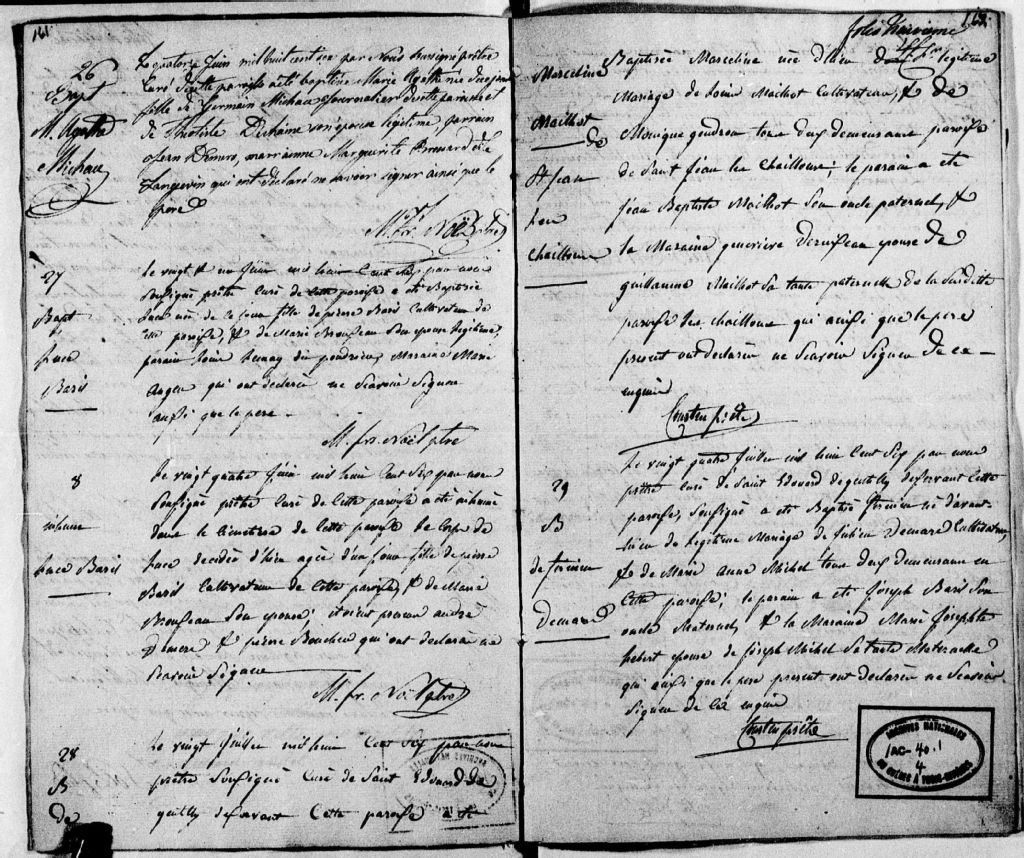 161
26
Bapt
M. Agathe
Michau
Le quatorze Juin mil huit cent six par Nous soussigné prêtre
curé de cette paroisse a été baptisée Marie Agathe née
fille de Germain Michau Journalier de cette paroisse et
de Theotiste Duchaine son épouse légitime, parrain
Jean Demers, marrainne Marguerite Brouard dite
Langevin qui ont déclaré ne savoir signer ainsi que le
père
M. fr. Noël ptre
27
Bapt
Luce
Baril
Le vingt & un Juin mil huit Cent Six par nous
Soussigné prêtre Curé de Cette paroisse a été Baptisée
Luce née de ce jour fille de pierre Baril Cultivateur de
Cette paroisse, & de Marie Brousseau Son epouse legitime,
parain Louis Maraine Marie
Auger qui ont declarée ne Scavoir Signer
aussi que le pere
M. fr. Noël ptre
8
inhum
Luce Baril
Le vingt quatre Juin mil huit Cent Six par nous
Soussigné prêtre Curé de Cette paroisse a été inhumé
dans le Cimetiere de Cette paroisse le Corps de
Luce decedée d'hier agée d'un jour fille de pierre
Baril Cultivateur de Cette paroisse, & de Marie
Brousseau Son epouse; etoient present andré
Demere & pierre Boucher qui ont declarée ne
Scavoir Signer
M. fr. Noël ptre
28
B
de
Le vingt Juillet mil huit Cent Six par nous
prêtre Soussigné Curé de Saint Edouard de
gentilly desservant Cette paroisse a été
162
folio
Marceline
Mailhot
de
St Jean
Les
Chaillons
Baptisée Marceline née d'hier du legitime
Mariage de Louis Mailhot Cultivateur, & de
Monique gendron tous deux demeurans paroisse
de Saint Jean les Chaillons; le parain a été
Jean Baptiste Mailhot Son oncle paternel, &
la Maraine genevieve Derusseau epouse de
guillaume Mailhot Sa tante paternelle de la Susditte
paroisse des Chaillons qui aussi que le pere
present ont declarée ne Scavoir Signer de ce
enquis
Courtin prêtre
29
B
de firmin
Demare
Le vingt quatre Juillet mil huit Cent Six par nous
prêtre Curé de Saint Edouard de gentilly desservant Cette
paroisse, Soussigné a été Baptisé firmin né d'avant
hier du legitime Mariage de Julien Demare Cultivateur,
& de Marie anne Michel tous deux demeurans en
Cette paroisse; le parain a été Joseph Baril Son
oncle Maternel, & la Maraine Marie Josephte
hebert epouse de Joseph Michel Sa tante Maternelle
qui aussi que le pere present ont declarée ne Scavoir
Signer de ce enquis
Courtin prêtre
ARCHIVES NATIONALES
AC-40.1
4
DU QUÉBEC À TROIS-RIVIÈRES